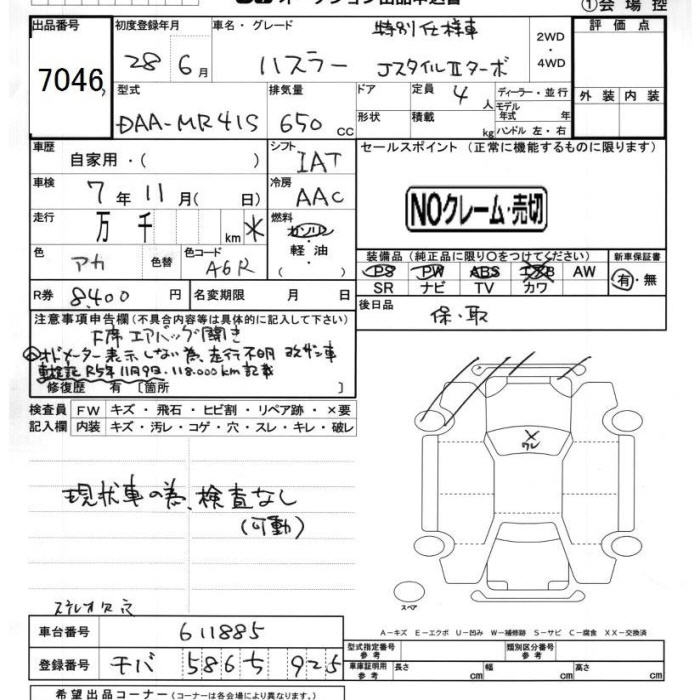 ①会場控
出品番号 初度登録年月 車名・グレード 特別仕様車 2WD・4WD 評価点
7046 28 6月 ハスラー JスタイルⅡターボ
型式 排気量 ドア 定員 4人 ディーラー・並行 外装 内装
DAA-MR41S 650cc 形状 積載 kg モデル年式 年 ハンドル 左・右
車歴 自家用・( ) シフト IAT セールスポイント (正常に機能するものに限ります)
車検 7年11月( 日) 冷房 AAC
NOクレーム・売切
走行 万 千 km 燃料 ガソリン・軽油・( )
色 アカ 色替 色コード A6R
装備品 (純正品に限り○をつけてください) 新車保証書
PS PW ABS AW 有・無
SR ナビ TV カワ
R券 8,400円 名変期限 月 日 後日品 保・取
注意事項申告欄(不具合内容等は具体的に記入して下さい)
エアバッグ開き
オドメーター表示しない為、走行不明
R5年11月9日・118.000km記載
修復歴 有 〔箇所 〕
検査員記入欄 FW キズ・飛石・ヒビ割・リペア跡・×要
内装 キズ・汚レ・コゲ・穴・スレ・キレ・破レ
ワレ
現状車の為、検査なし
(可動)
スペア
ステレオ欠
A-キズ E-エクボ U-凹み W-補修跡 S-サビ C-腐食 XX-交換済
車台番号 611885
型式指定番号参考 類別区分番号参考
登録番号 モバ 5865 925
車庫証明用参考 長さ cm 幅 cm 高さ cm
希望出品コーナー (コーナーは各会場により異なります。)